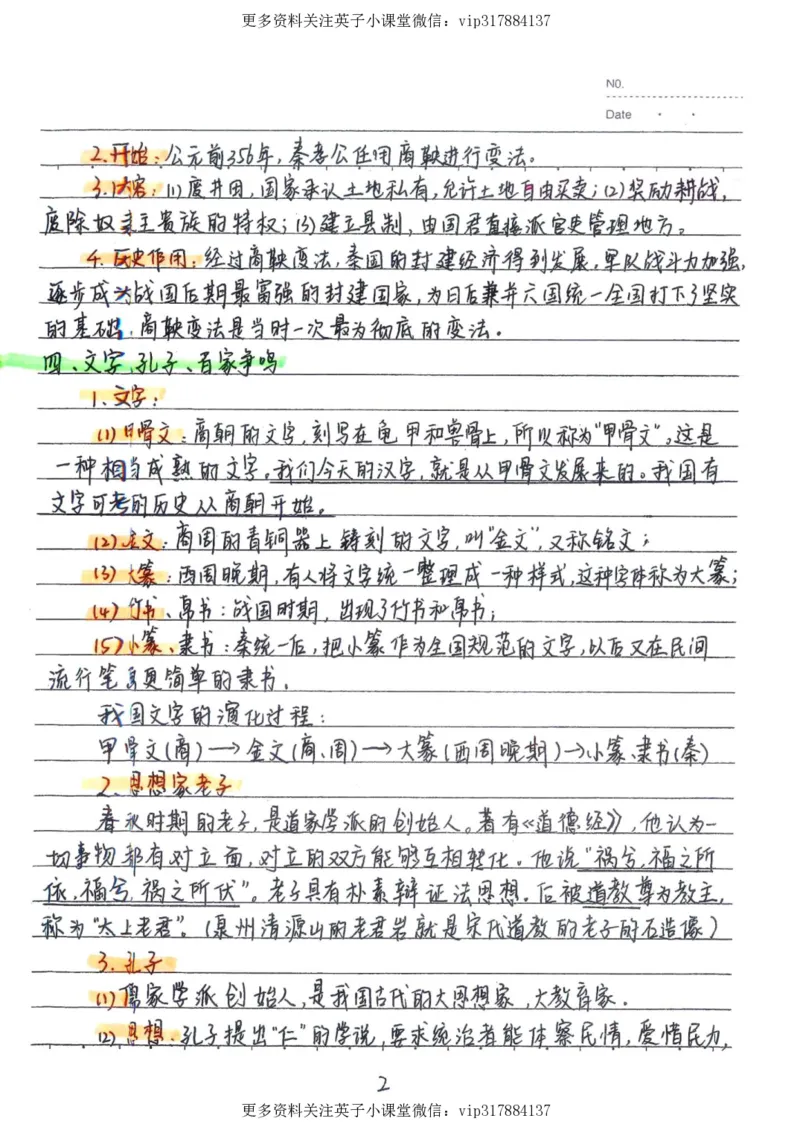 更多资料关注英子小课堂微信：vip317884137
NO.
Date
2.开始：公元前356年，秦孝公任用商鞅进行变法。
3.内容：(1)废井田，国家承认土地私有，允许土地自由买卖；(2)奖励耕战，
废除奴隶主贵族的特权；(3)建立县制，由国君直接派官吏管理地方。
4.历史作用：经过商鞅变法，秦国的封建经济得到发展，军队战斗力加强，
逐步成为战国后期最富强的封建国家，为日后兼并六国统一全国打下了坚实
的基础，商鞅变法是当时一次最为彻底的变法。
四、文字、孔子、百家争鸣
1.文字：
(1)甲骨文：商朝的文字，刻写在龟甲和兽骨上，所以称为“甲骨文”。这是
一种相当成熟的文字。我们今天的汉字，就是从甲骨文发展来的。我国有
文字可考的历史从商朝开始。
(2)金文：商周的青铜器上铸刻的文字，叫“金文”，又称铭文；
(3)大篆：西周晚期，有人将文字统一整理成一种样式，这种字体称为大篆；
(4)竹书、帛书：战国时期，出现了竹书和帛书；
(5)小篆、隶书：秦统一后，把小篆作为全国规范的文字，以后又在民间
流行笔画更简单的隶书。
我国文字的演化过程：
甲骨文(商)→金文(商、周)→大篆(西周晚期)→小篆、隶书(秦)
2、思想家老子
春秋时期的老子，是道家学派的创始人。著有《道德经》，他认为一
切事物都有对立面，对立的双方能够互相转化。他说“祸兮，福之所
依，福兮，祸之所伏”。老子具有朴素辩证法思想。后被道教尊为教主，
称为“太上老君”。(泉州清源山的老君岩就是宋代道教的老子的石造像)
3.孔子
(1)儒家学派创始人，是我国古代的大思想家，大教育家。
(2)思想：孔子提出“仁”的学说，要求统治者能体察民情，爱惜民力，
2
更多资料关注英子小课堂微信：vip317884137